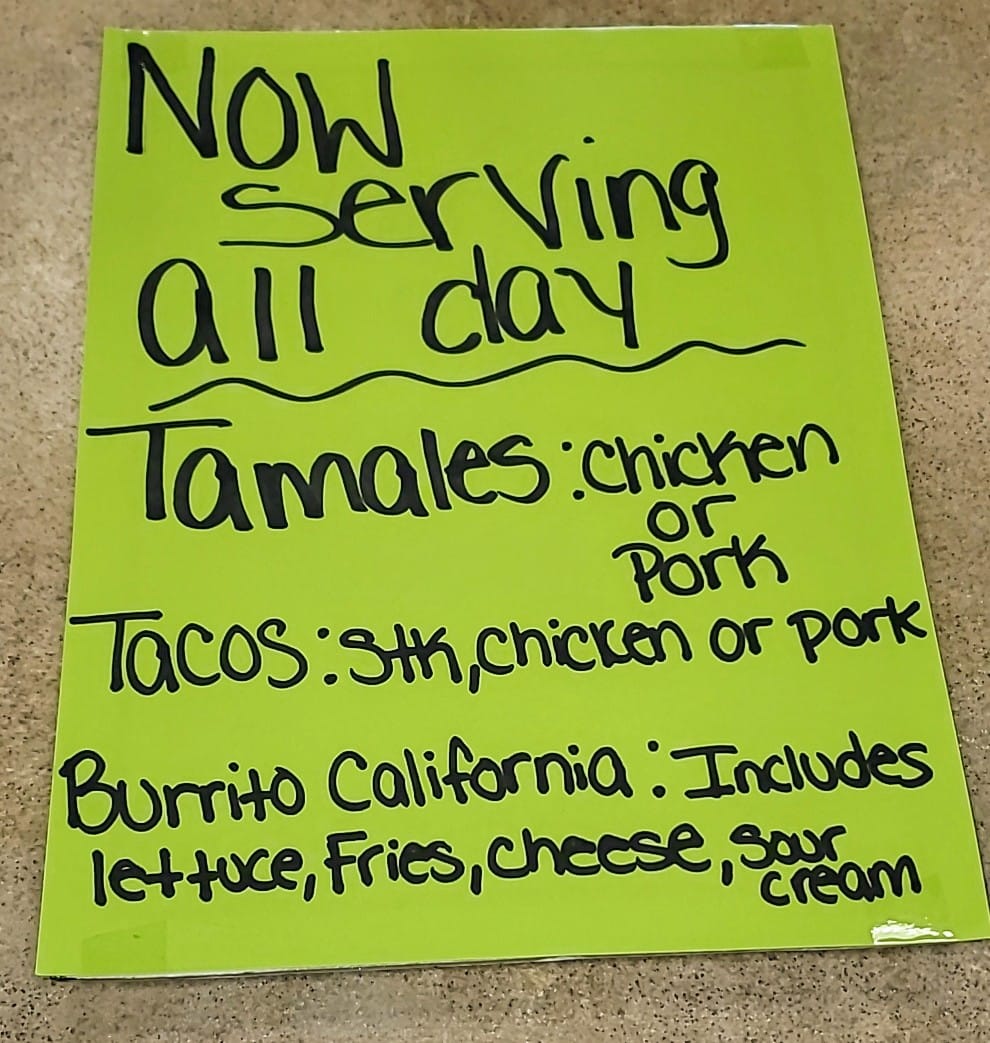 Now
serving
all day
Tamales: chicken
or
Pork
Tacos: Stk, chicken or pork
Burrito California: Includes
lettuce, Fries, cheese, sour
cream